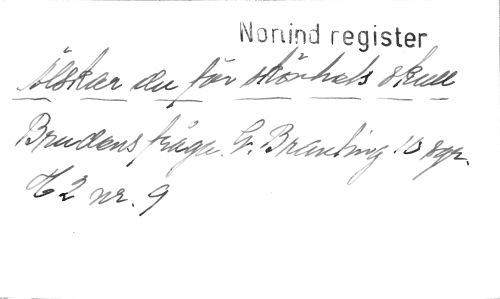 Nonind register
Älskar du för skönhets skull
Brudens fråga. G. Branting 10 sgr.
C2 nr. 9